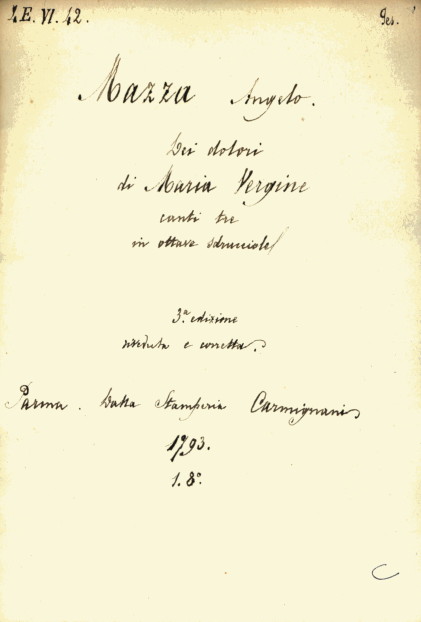 I.E.VI.42. Ges.
Mazza Angelo.
Dei dolori
di Maria Vergine
canti tre
in ottave sdrucciole
3.a edizione
riveduta e corretta.
Parma. Dalla Stamperia Carmignani
1793.
1. 8°.
C